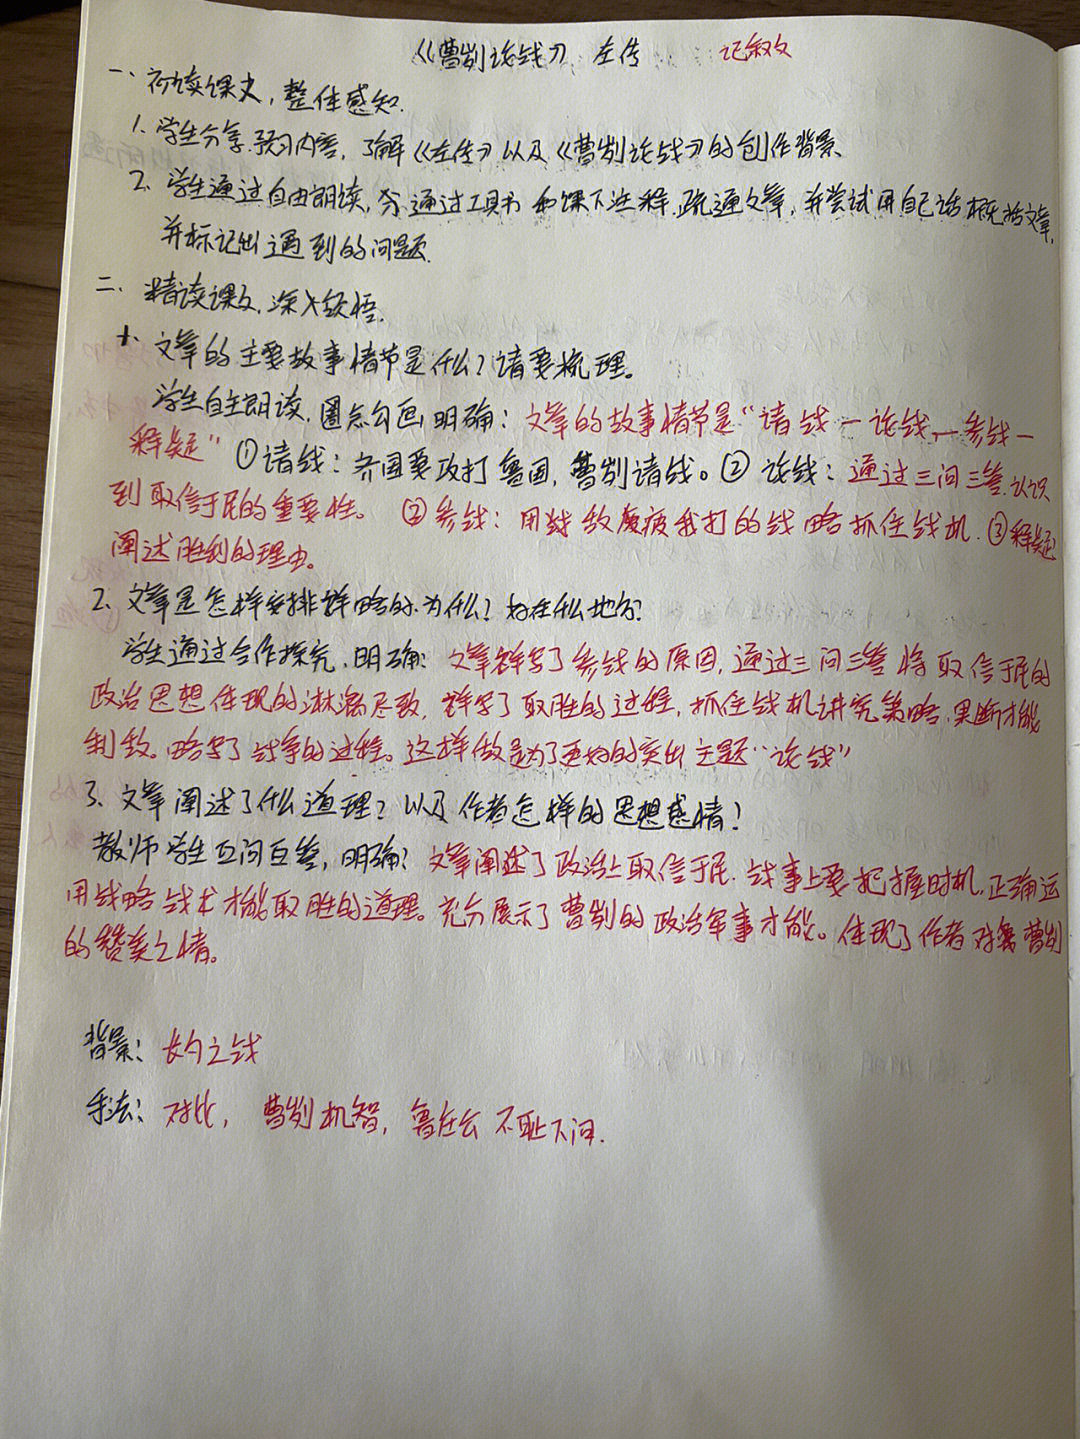 《曹刿论战》 左传 记叙文
一、初读课文，整体感知.
1. 学生分享预习内容，了解《左传》以及《曹刿论战》的创作背景
2. 学生通过自由朗读，通过工具书和课下注释，疏通文章，并尝试用自己话概括文章，
并标记出遇到的问题.
二、精读课文，深入领悟.
1. 文章的主要故事情节是什么？请要梳理。
学生自主朗读，圈点勾画，明确：文章的故事情节是“请战—论战—参战—
释疑” ①请战：齐国要攻打鲁国，曹刿请战。② 论战：通过三问三答，认识
到取信于民的重要性。 ②参战：用敌疲我打的战略抓住战机. ③释疑
阐述胜利的理由。
2. 文章是怎样安排详略的.为什么？好在什么地方？
学生通过合作探究，明确：文章详写了参战的原因，通过三问三答将取信于民的
政治思想体现的淋漓尽致，详写了取胜的过程，抓住战机讲究策略，果断才能
制敌。略写了战争的过程。这样做是为了更好的突出主题“论战”
3. 文章阐述了什么道理？以及作者怎样的思想感情！
教师学生互问互答，明确：文章阐述了政治上取信于民，战事上要把握时机，正确运
用战略战术才能取胜的道理。充分展示了曹刿的政治军事才能。体现了作者对曹刿
的赞美之情。
背景：长勺之战
手法：对比， 曹刿机智，鲁庄公不耻下问.